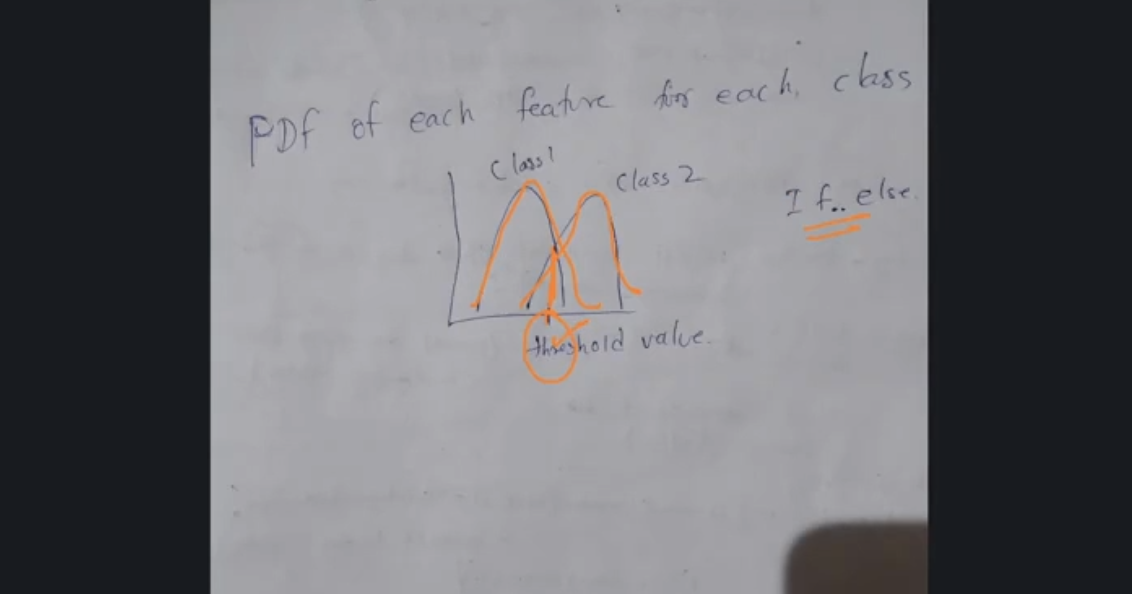 PDf of each feature for each class
Class 1
Class 2
If.. else.
threshold value.